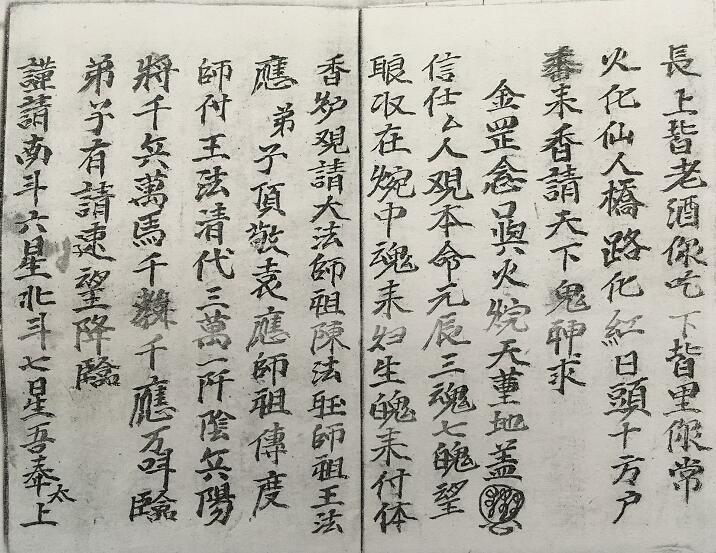 長上皆老酒你吃下皆里你常
火化仙人橋路化紅日頭十方户
番未香請天下鬼神求
金罡念口真火烷天堇地盖
信仕厶人观本命元辰三魂七魄望
取在烷中魂未妇生魄未付体
香炉观請大法師祖陳法師祖王法
應弟子頂敬袁應師祖傳度
師付王法清代三萬一阡陰兵陽
將千兵萬馬千千應万叫臨
弟子有請速望降臨
謹請南斗六星北斗七星吾奉太上